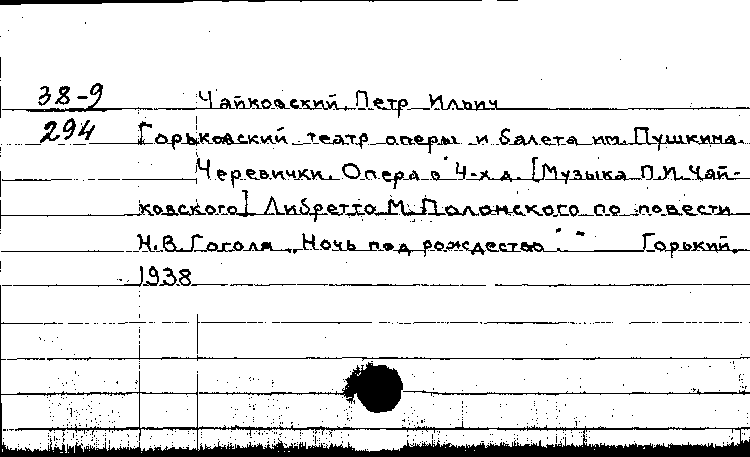 38-9 Чайковский, Петр Ильич
294 Горьковский театр оперы и балета им. Пушкина.
Черевички. Опера в 4-х д. [Музыка П.И. Чай-
ковского] Либретто М. Полонского по повести
Н.В. Гоголя „Ночь под рождество". Горький,
1938